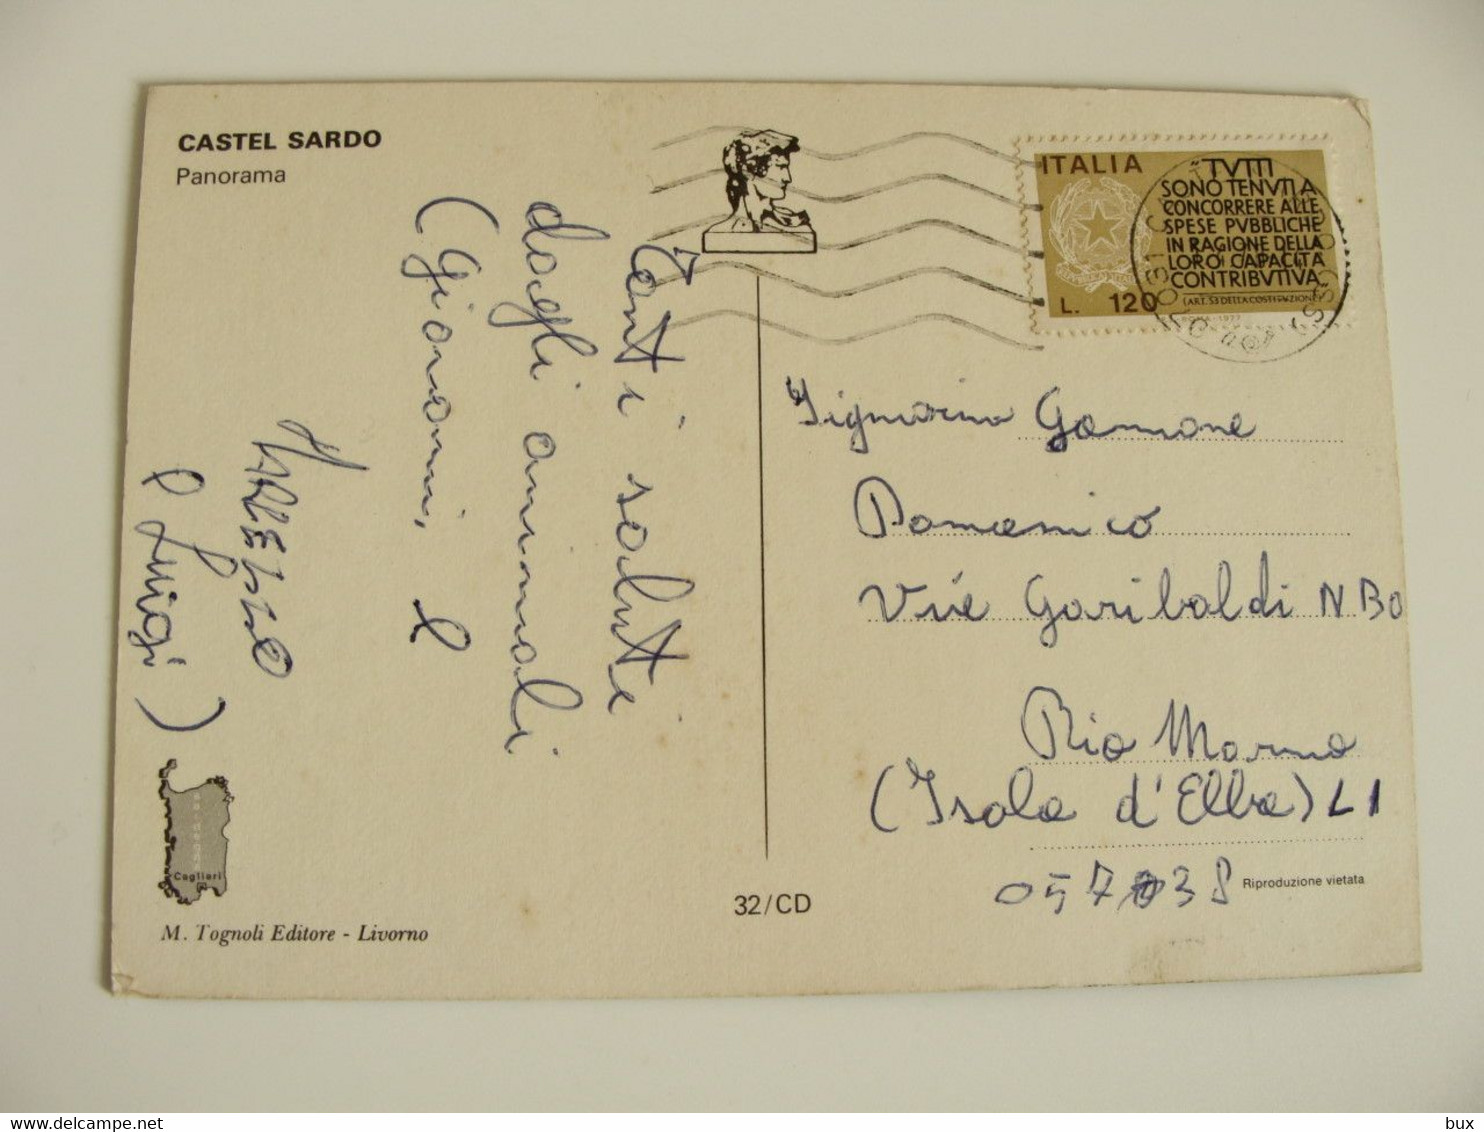 CASTEL SARDO
Panorama
Tanti saluti
dagli animali
(Giovanni, e
MARCELLO
e Luigi)
ITALIA
"TVTTI
SONO TENVTI A
CONCORRERE ALLE
SPESE PVBBLICHE
IN RAGIONE DELLA
LORO CAPACITÀ
CONTRIBVTIVA"
(ART. 53 DELLA COSTITUZIONE)
L. 120
ROMA - 1977
Signorino Gannone
Domenico
Vie Garibaldi N
Rio Marno
(Isola d'Elba) LI
Riproduzione vietata
Cagliari
32/CD
M. Tognoli Editore - Livorno
bux